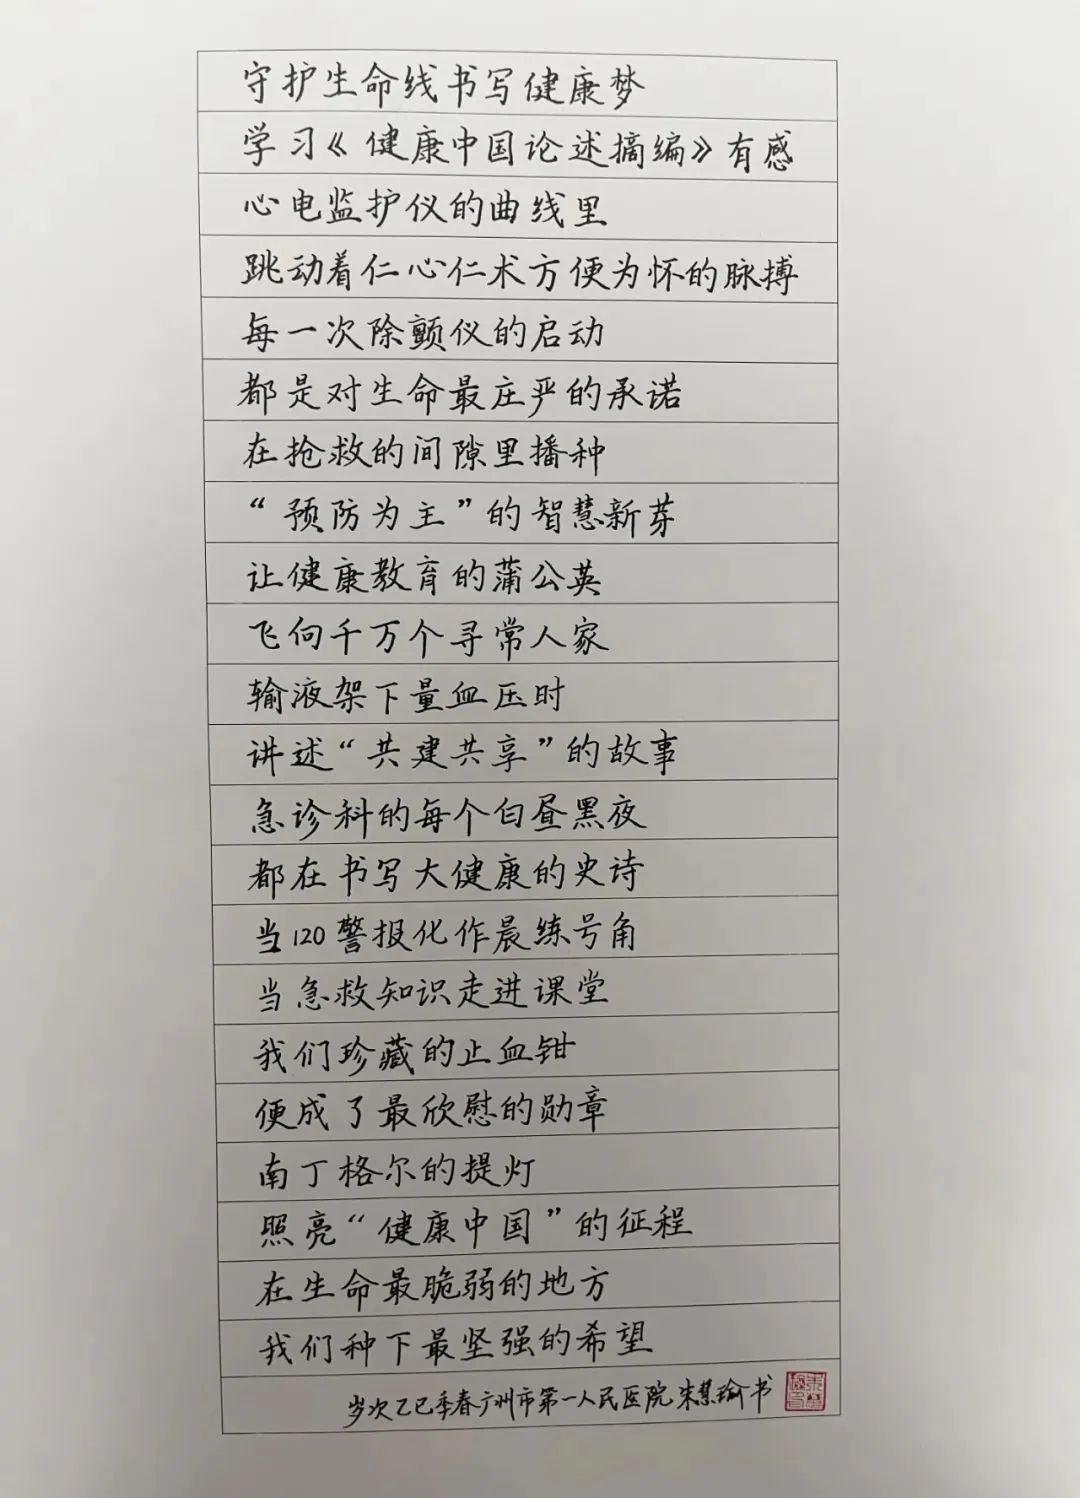 守护生命线书写健康梦
学习《健康中国论述摘编》有感
心电监护仪的曲线里
跳动着仁心仁术方便为怀的脉搏
每一次除颤仪的启动
都是对生命最庄严的承诺
在抢救的间隙里播种
“预防为主”的智慧新芽
让健康教育的蒲公英
飞向千万个寻常人家
输液架下量血压时
讲述“共建共享”的故事
急诊科的每个白昼黑夜
都在书写大健康的史诗
当120警报化作晨练号角
当急救知识走进课堂
我们珍藏的止血钳
便成了最欣慰的勋章
南丁格尔的提灯
照亮“健康中国”的征程
在生命最脆弱的地方
我们种下最坚强的希望
岁次乙巳季春广州市第一人民医院朱慧瑜书